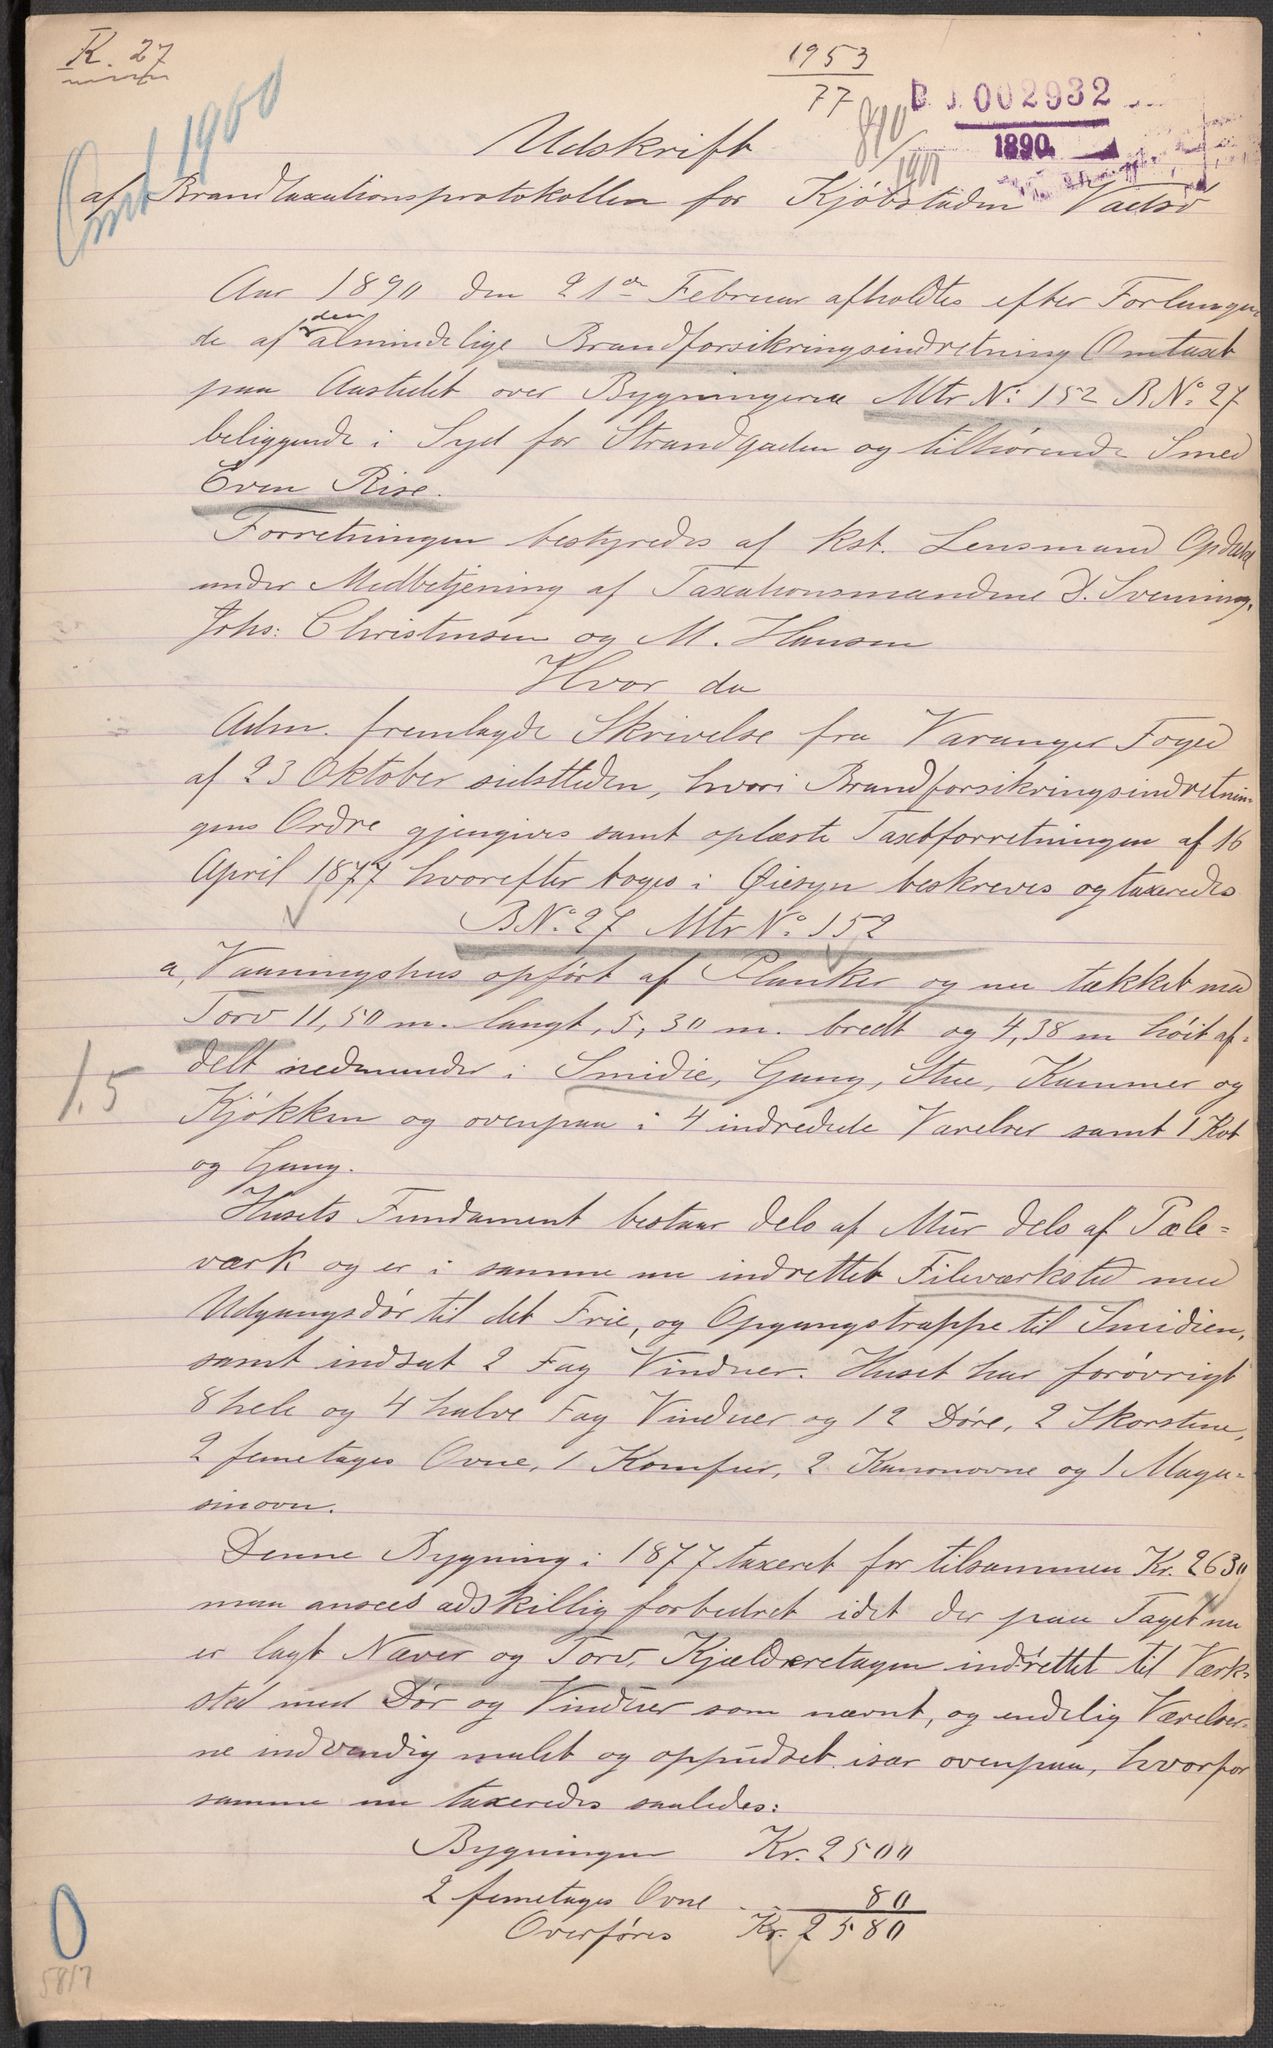 K. 27
1953
77
B. J. 002932
1890
Omt 1900
810
1900
Udskrift
af Brandtaxationsprotokollen for Kjøbstaden Vadsø
Aar 1890 den 21de Februar afholdtes efter Forlangen-
de af den almindelige Brandforsikringsindretning Omtaxt
paa Aastedet over Bygningerne Mtr No: 152 BNo: 27
beliggende i Syd for Strandgaden og tilhørende Smed
Even Rise.
Forretningen bestyredes af kst. Lensmand Opdahl
under Medbetjening af Taxationsmændene D. Svenning,
Johs: Christensen og M. Hansen
Hvor da
Adm. fremlagde Skrivelse fra Varanger Foged
af 23 Oktober sidstleden, hvori Brandforsikringsindretnin-
gens Ordre gjengives samt oplæste Taxtforretningen af 16
April 1877 hvorefter toges i Øiesyn beskreves og taxeredes
BNo: 27 Mtr No: 152
a, Vaaningshus opført af Planker og nu tækket med
Torv 11,50 m. langt, 5,30 m. bredt og 4,38 m høit af-
delt nedenunder i Smidie, Gang, Stue, Kammer og
1.5
Kjøkken og ovenpaa i 4 indredede Værelser samt 1 Kot
og Gang.
Husets Fundament bestaar dels af Mur dels af Pæle-
værk og er i samme nu indrettet Fileværksted med
Udgangsdør til det Frie, og Opgangstrappe til Smidien,
samt indsat 2 Fag Vinduer. Huset har forøvrigt
8 hele og 4 halve Fag Vinduer og 12 Døre, 2 Skorstene,
2 femetages Ovne, 1 Komfur, 2 Kanonovne og 1 Maga-
sinovn.
Denne Bygning i 1877 taxeret for tilsammen Kr. 2630
maa ansees adskillig forbedret idet der paa Taget nu
er lagt Næver og Torv, Kjælderetagen indrettet til Værk-
sted med Dør og Vinduer som nævnt, og endelig Værelser-
ne indvendig malet og oppudset især ovenpaa, hvorfor
samme nu taxeredes saaledes:
Bygningen Kr. 2500
2 femetages Ovne - " - 80
Overføres Kr. 2580
0
5817